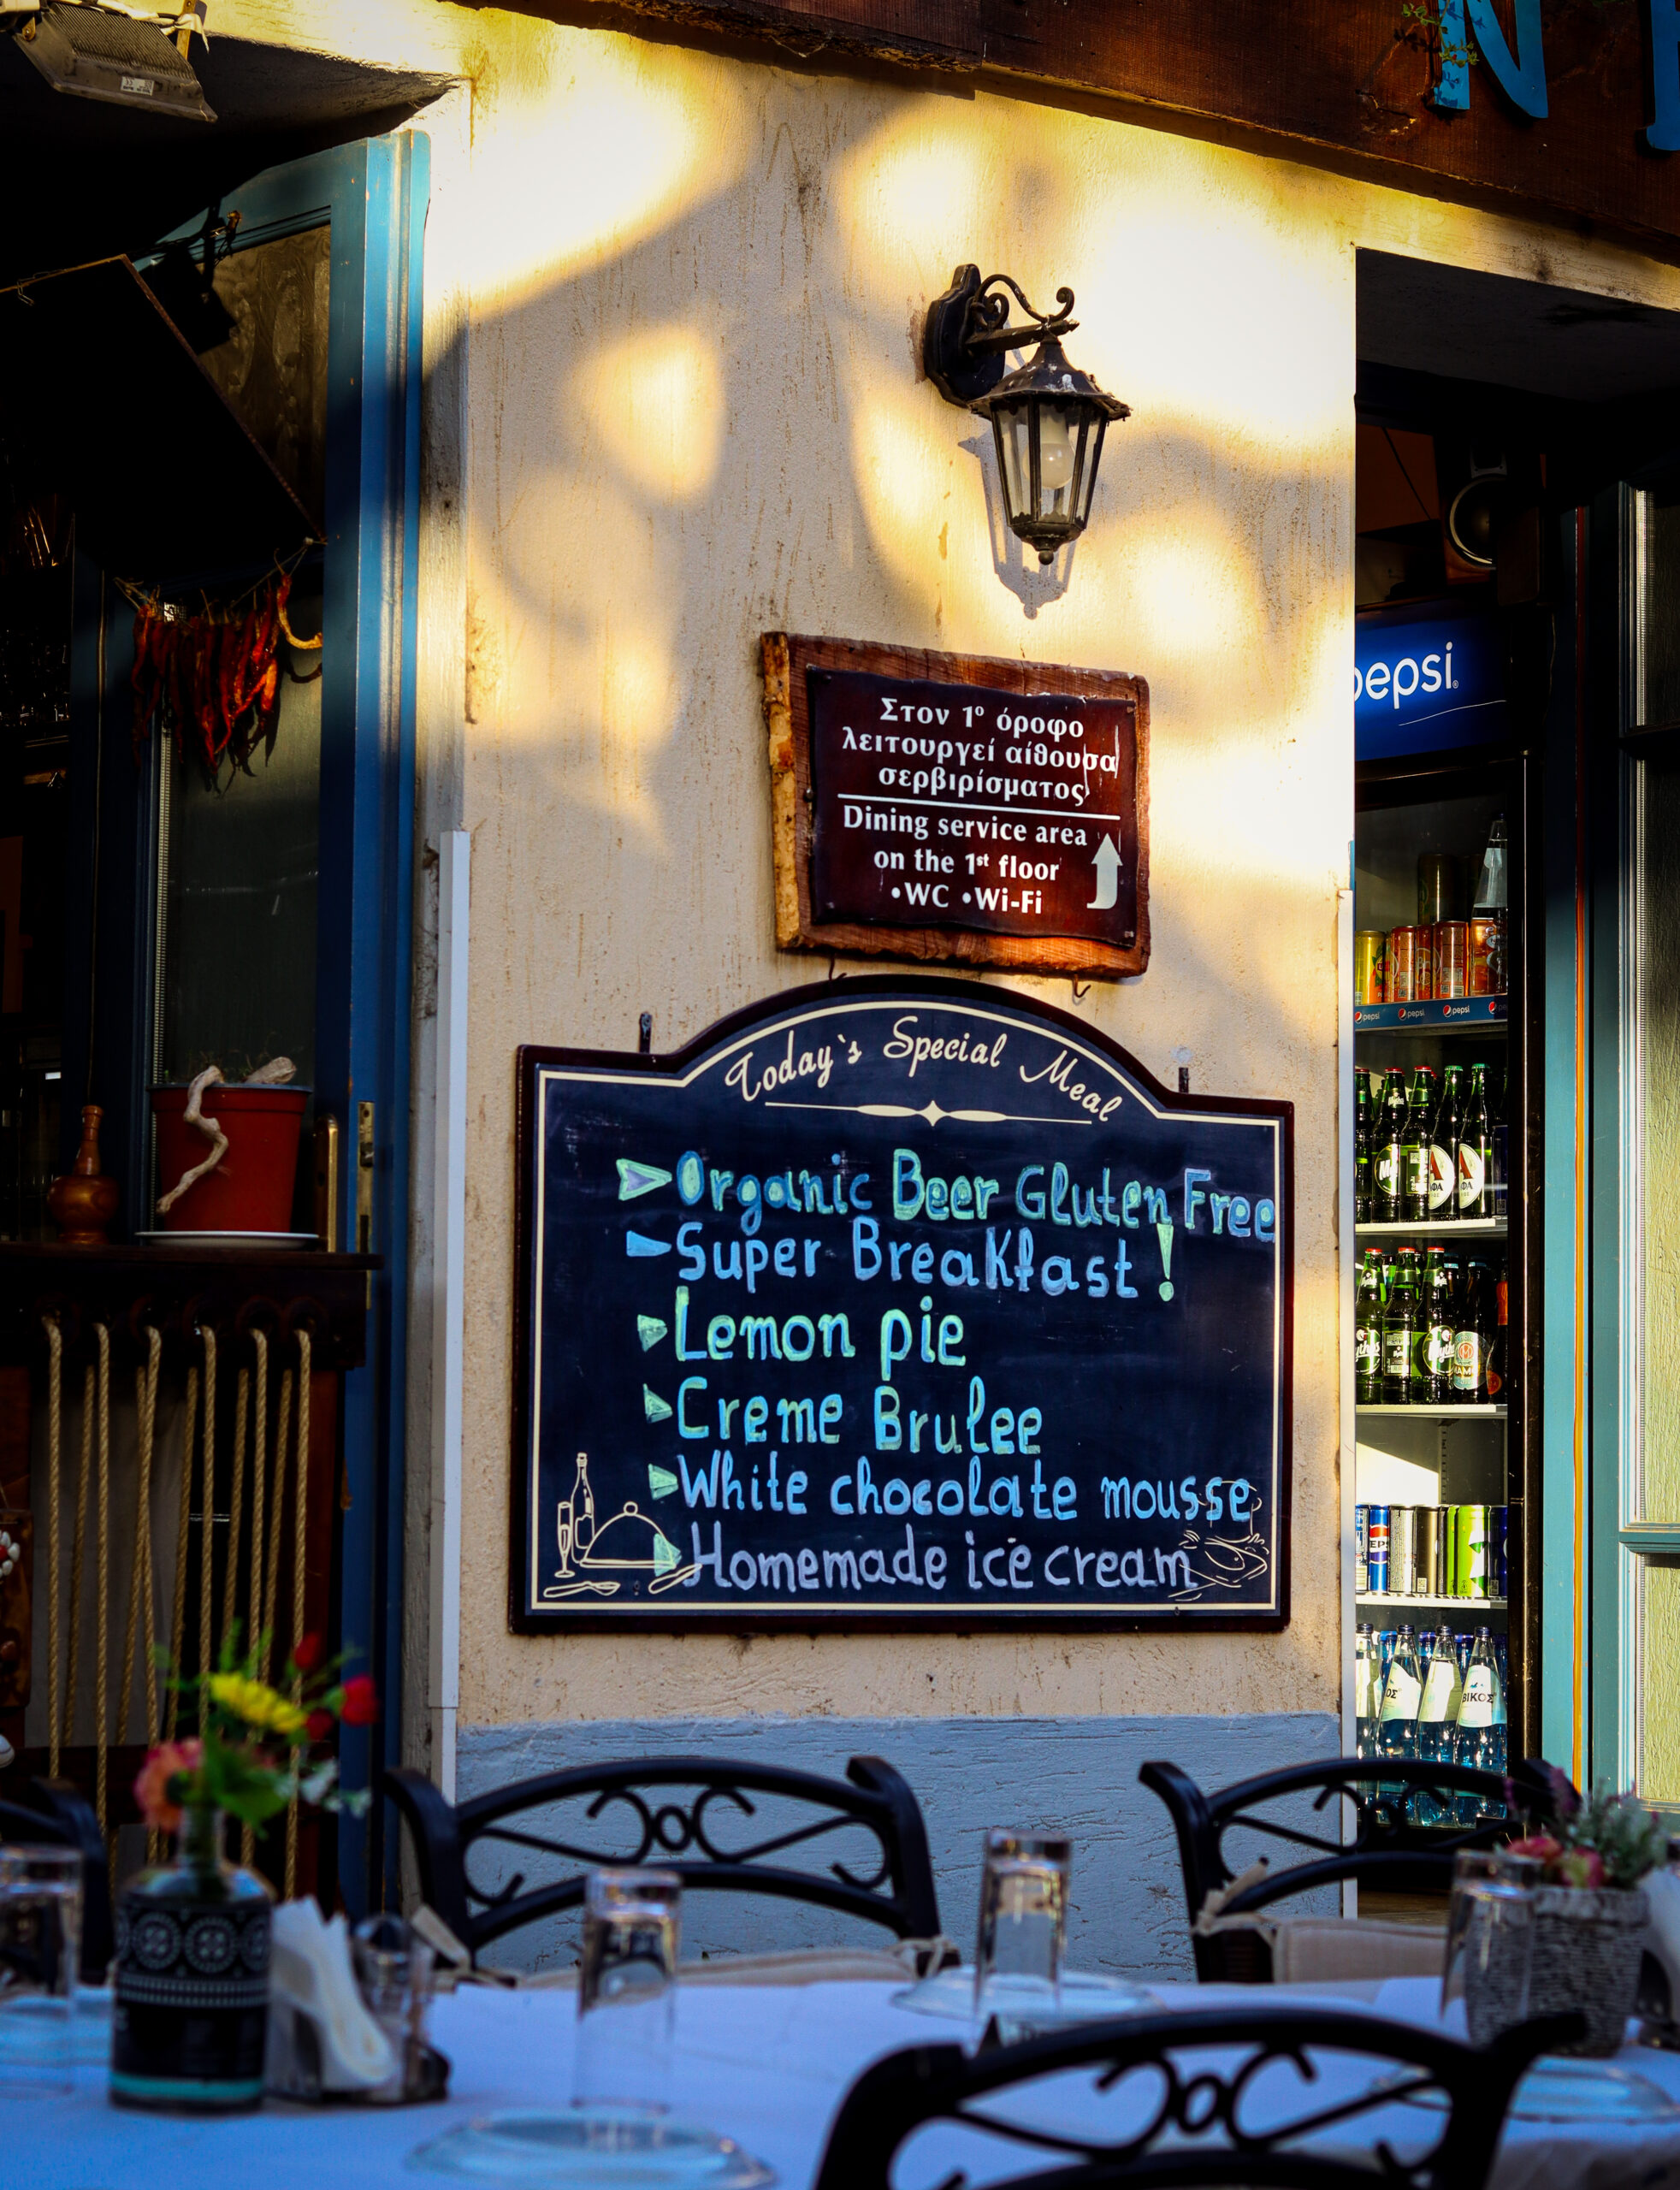 pepsi
Στον 1º όροφο
λειτουργεί αίθουσα
σερβιρίσματος
Dining service area
on the 1st floor
•WC •Wi-Fi
Today`s Special Meal
Organic Beer Gluten Free
Super Breakfast!
Lemon pie
Creme Brulee
White chocolate mousse
Homemade ice cream
pepsi pepsi pepsi
ΒΙΚΟΣ